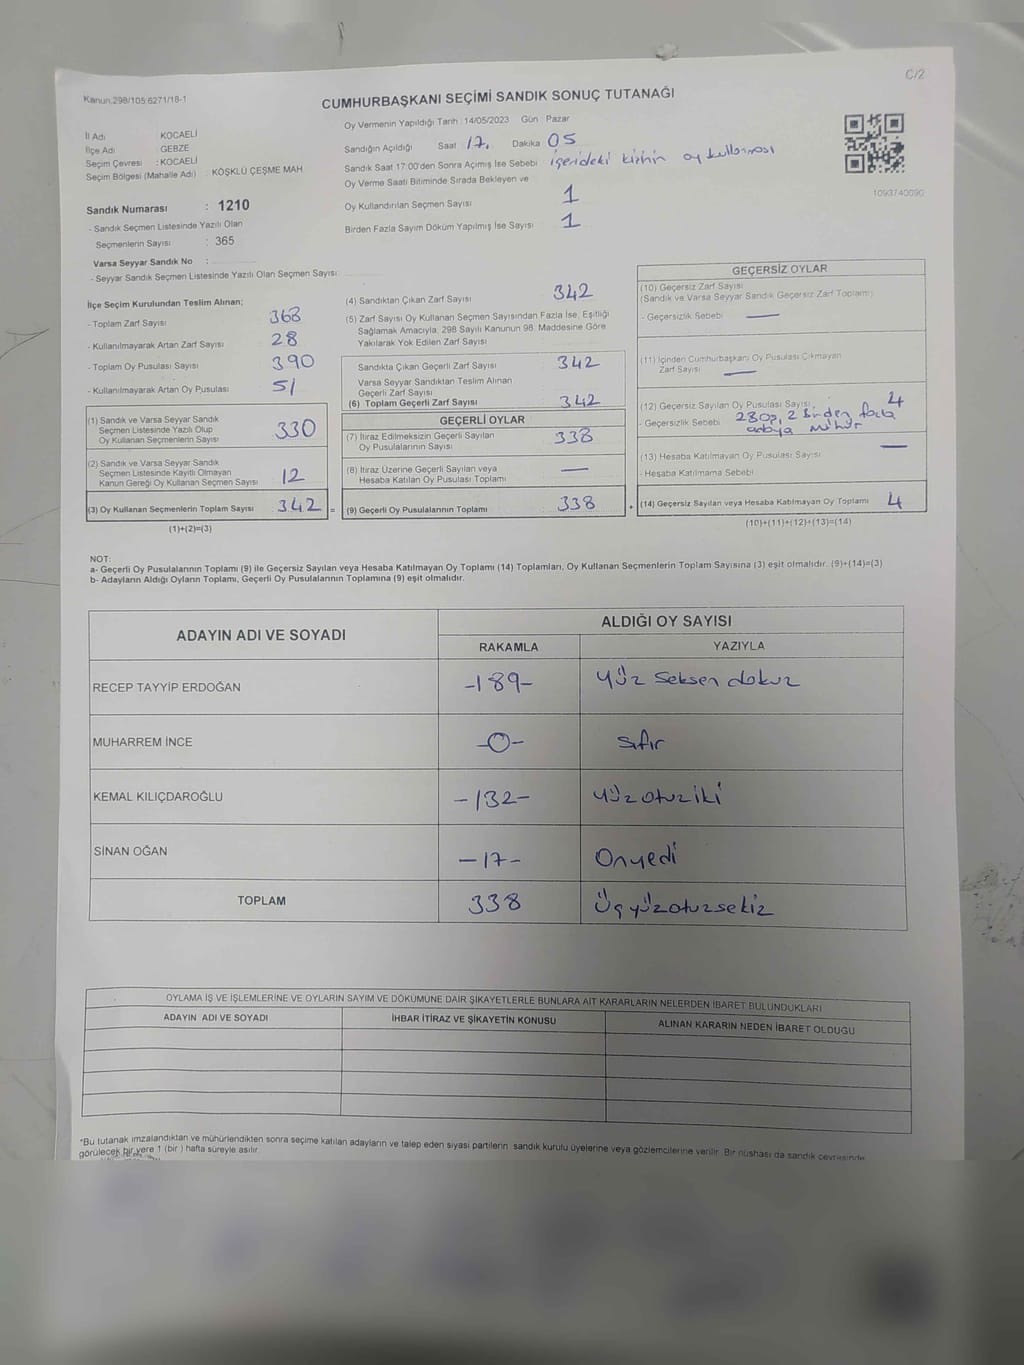 C/2
Kanun.298/105:6271/18-1
CUMHURBAŞKANI SEÇİMİ SANDIK SONUÇ TUTANAĞI
İl Adı : KOCAELİ
İlçe Adı : GEBZE
Seçim Çevresi : KOCAELİ
Seçim Bölgesi (Mahalle Adı) KÖŞKLÜ ÇEŞME MAH
Sandık Numarası : 1210
- Sandık Seçmen Listesinde Yazılı Olan
Seçmenlerin Sayısı : 365
Varsa Seyyar Sandık No :
- Seyyar Sandık Seçmen Listesinde Yazılı Olan Seçmen Sayısı:
Oy Vermenin Yapıldığı Tarih :14/05/2023 Gün : Pazar
Sandığın Açıldığı Saat 17. Dakika 05
Sandık Saat 17:00'den Sonra Açımış İse Sebebi içerideki kişinin oy kullanması
Oy Verme Saati Bitiminde Sırada Bekleyen ve
Oy Kullandırılan Seçmen Sayısı 1
Birden Fazla Sayım Döküm Yapılmış İse Sayısı 1
1093740090
İlçe Seçim Kurulundan Teslim Alınan;
- Toplam Zarf Sayısı 368
- Kullanılmayarak Artan Zarf Sayısı 28
- Toplam Oy Pusulası Sayısı 390
- Kullanılmayarak Artan Oy Pusulası 51
(1) Sandık ve Varsa Seyyar Sandık
Seçmen Listesinde Yazılı Olup
Oy Kullanan Seçmenlerin Sayısı 330
(2) Sandık ve Varsa Seyyar Sandık
Seçmen Listesinde Kayıtlı Olmayan
Kanun Gereği Oy Kullanan Seçmen Sayısı 12
(3) Oy Kullanan Seçmenlerin Toplam Sayısı 342 =
(1)+(2)=(3)
(4) Sandıktan Çıkan Zarf Sayısı 342
(5) Zarf Sayısı Oy Kullanan Seçmen Sayısından Fazla İse, Eşitliği
Sağlamak Amacıyla, 298 Sayılı Kanunun 98. Maddesine Göre
Yakılarak Yok Edilen Zarf Sayısı
Sandıkta Çıkan Geçerli Zarf Sayısı 342
Varsa Seyyar Sandıktan Teslim Alınan
Geçerli Zarf Sayısı
(6) Toplam Geçerli Zarf Sayısı 342
GEÇERLİ OYLAR
(7) İtiraz Edilmeksizin Geçerli Sayılan
Oy Pusulasının Sayısı 338
(8) İtiraz Üzerine Geçerli Sayılan veya
Hesaba Katılan Oy Pusulası Toplamı —
(9) Geçerli Oy Pusulalarının Toplamı 338
GEÇERSİZ OYLAR
(10) Geçersiz Zarf Sayısı
(Sandık ve Varsa Seyyar Sandık Geçersiz Zarf Toplamı)
- Geçersizlik Sebebi —
(11) İçinden Cumhurbaşkanı Oy Pusulası Çıkmayan
Zarf Sayısı —
(12) Geçersiz Sayılan Oy Pusulası Sayısı 4
- Geçersizlik Sebebi 2 Birden fazla
mühür
(13) Hesaba Katılmayan Oy Pusulası Sayısı —
Hesaba Katılmama Sebebi
(14) Geçersiz Sayılan veya Hesaba Katılmayan Oy Toplamı 4
(10)+(11)+(12)+(13)=(14)
NOT:
a- Geçerli Oy Pusulalarının Toplamı (9) ile Geçersiz Sayılan veya Hesaba Katılmayan Oy Toplamı (14) Toplamları, Oy Kullanan Seçmenlerin Toplam Sayısına (3) eşit olmalıdır. (9)+(14)=(3)
b- Adayların Aldığı Oyların Toplamı, Geçerli Oy Pusulalarının Toplamına (9) eşit olmalıdır.
ADAYIN ADI VE SOYADI ALDIĞI OY SAYISI
RAKAMLA YAZIYLA
RECEP TAYYİP ERDOĞAN -189- Yüz Seksen dokuz
MUHARREM İNCE -0- Sıfır
KEMAL KILIÇDAROĞLU -132- Yüzotuziki
SİNAN OĞAN -17- Onyedi
TOPLAM 338 Üçyüzotuzsekiz
OYLAMA İŞ VE İŞLEMLERİNE VE OYLARIN SAYIM VE DÖKÜMÜNE DAİR ŞİKAYETLERLE BUNLARA AİT KARARLARIN NELERDEN İBARET BULUNDUKLARI
ADAYIN ADI VE SOYADI İHBAR İTİRAZ VE ŞİKAYETİN KONUSU ALINAN KARARIN NEDEN İBARET OLDUĞU
*Bu tutanak imzalandıktan ve mühürlendikten sonra seçime katılan adayların ve talep eden siyasi partilerin sandık kurulu üyelerine veya gözlemcilerine verilir. Bir nüshası da sandık çevresinde
görülecek bir yere 1 (bir ) hafta süreyle asılır.